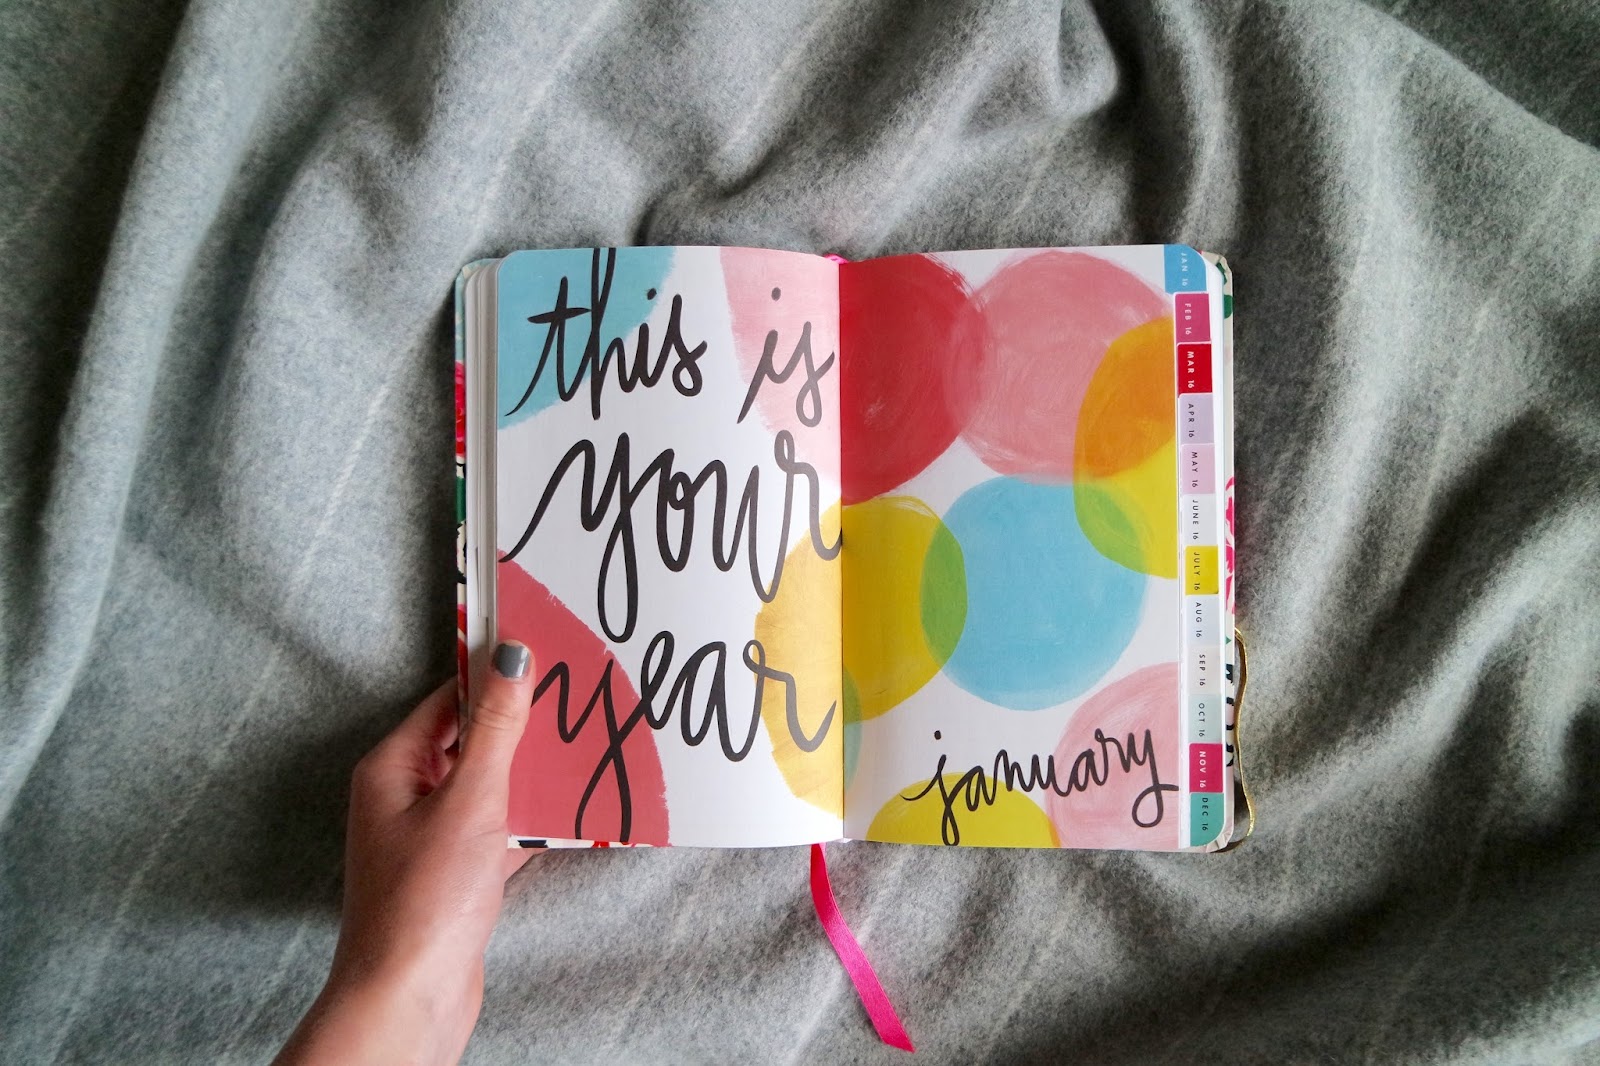 this is
your
year
january
JAN 16
FEB 16
MAR 16
APR 16
MAY 16
JUNE 16
JULY 16
AUG 16
SEP 16
OCT 16
NOV 16
DEC 16